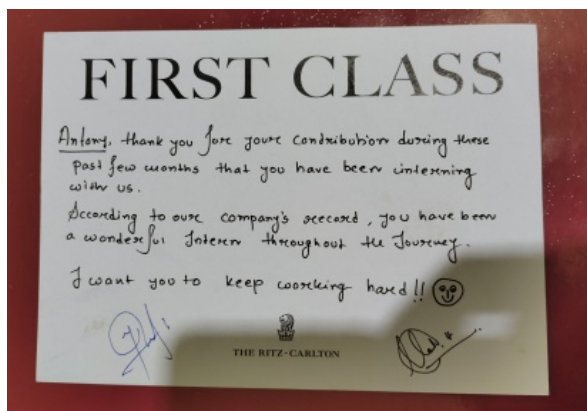 FIRST CLASS
Antony, thank you fore youre contribution during these
past few months that you have been interning
with us.
According to oure company's record, you have been
a wonderful Intern throughout the Journey.
I want you to keep working hard!!
THE RITZ-CARLTON